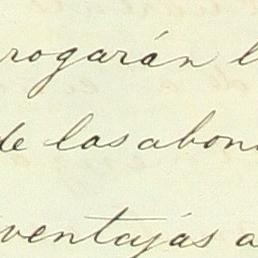 rrogarán l
de las abon
ventajás a